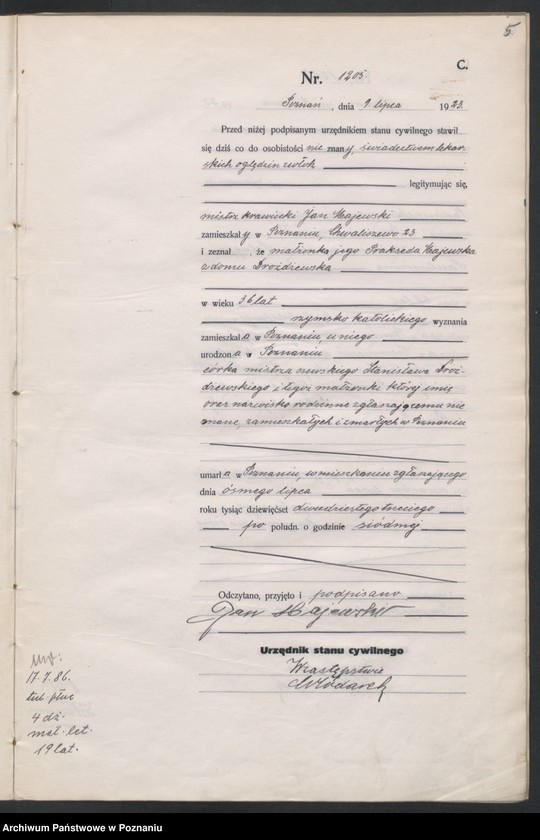 5
C.
Nr. 1205
Poznań, dnia 9 lipca 1923
Przed niżej podpisanym urzędnikiem stanu cywilnego stawił
się dziś co do osobistości nie znany, świadectwem lekar-
skich oględzin zwłok
legitymując się,
mistrz krawiecki Jan Majewski
zamieszkały w Poznaniu, Chwaliszewo 23
i zeznał, że małżonka jego Prakseda Majewska
z domu Drożdzewska
w wieku 36 lat
rzymsko katolickiego wyznania
zamieszkała w Poznaniu u niego
urodzona w Poznaniu
córka mistrza Stanisława Droż-
dzewskiego i tegoż małżonki której imię
oraz nazwisko rodzinne zgłaszającemu nie
znane, zamieszkałych i zmarłych w Poznaniu
umarła w Poznaniu, w mieszkaniu zgłaszającego
dnia ósmego lipca
roku tysiąc dziewięćset dwudziestego trzeciego
po połudn. o godzinie siódmej
Odczytano, przyjęto i podpisano
Jan Majewski
Urzędnik stanu cywilnego
W zastępstwie
Włodarek
ur:
17.7.86.
tub. płuc
4 dz.
mał. let.
19 lat.
Archiwum Państwowe w Poznaniu